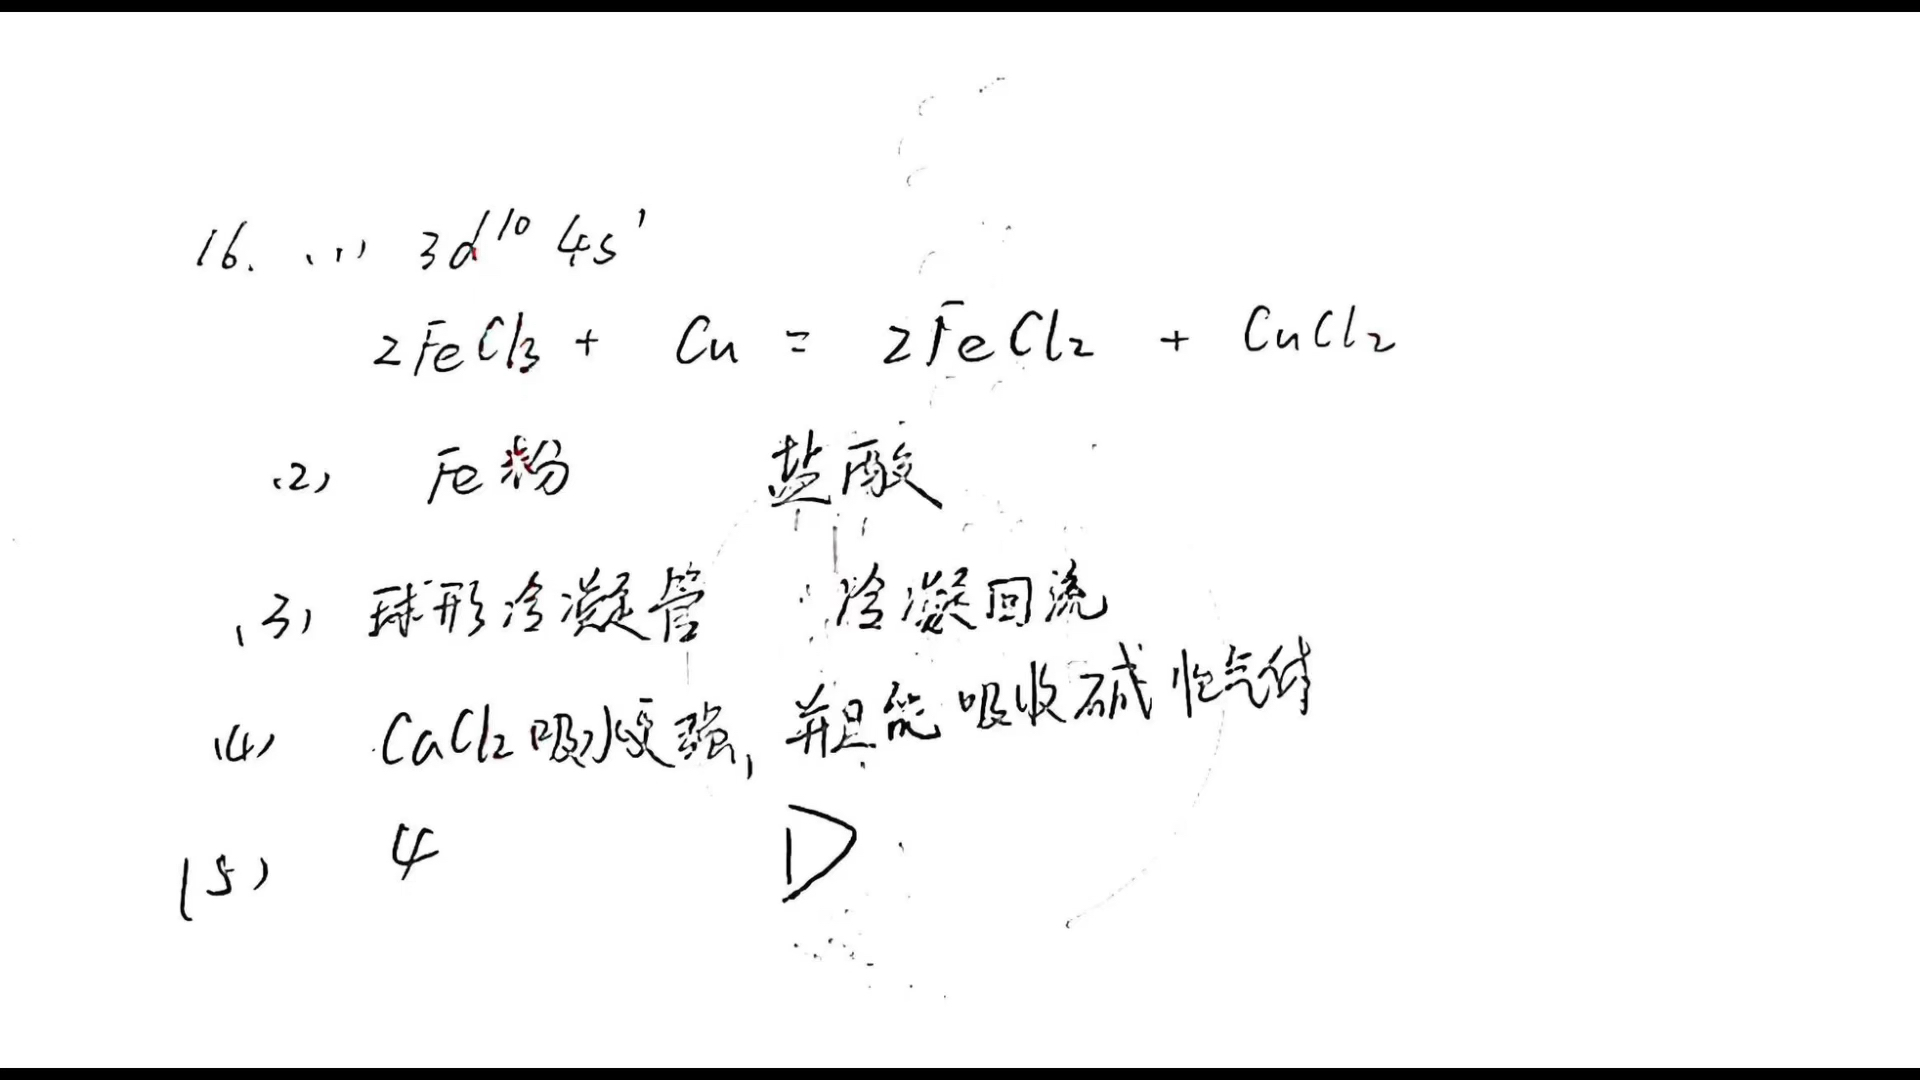 16. (1) 3d¹⁰ 4s¹
2FeCl3 + Cu = 2FeCl2 + CuCl2
(2) Fe粉 盐酸
(3) 球形冷凝管 冷凝回流
(4) CaCl2吸水更强, 并且能吸收碱性气体
(5) 4 D